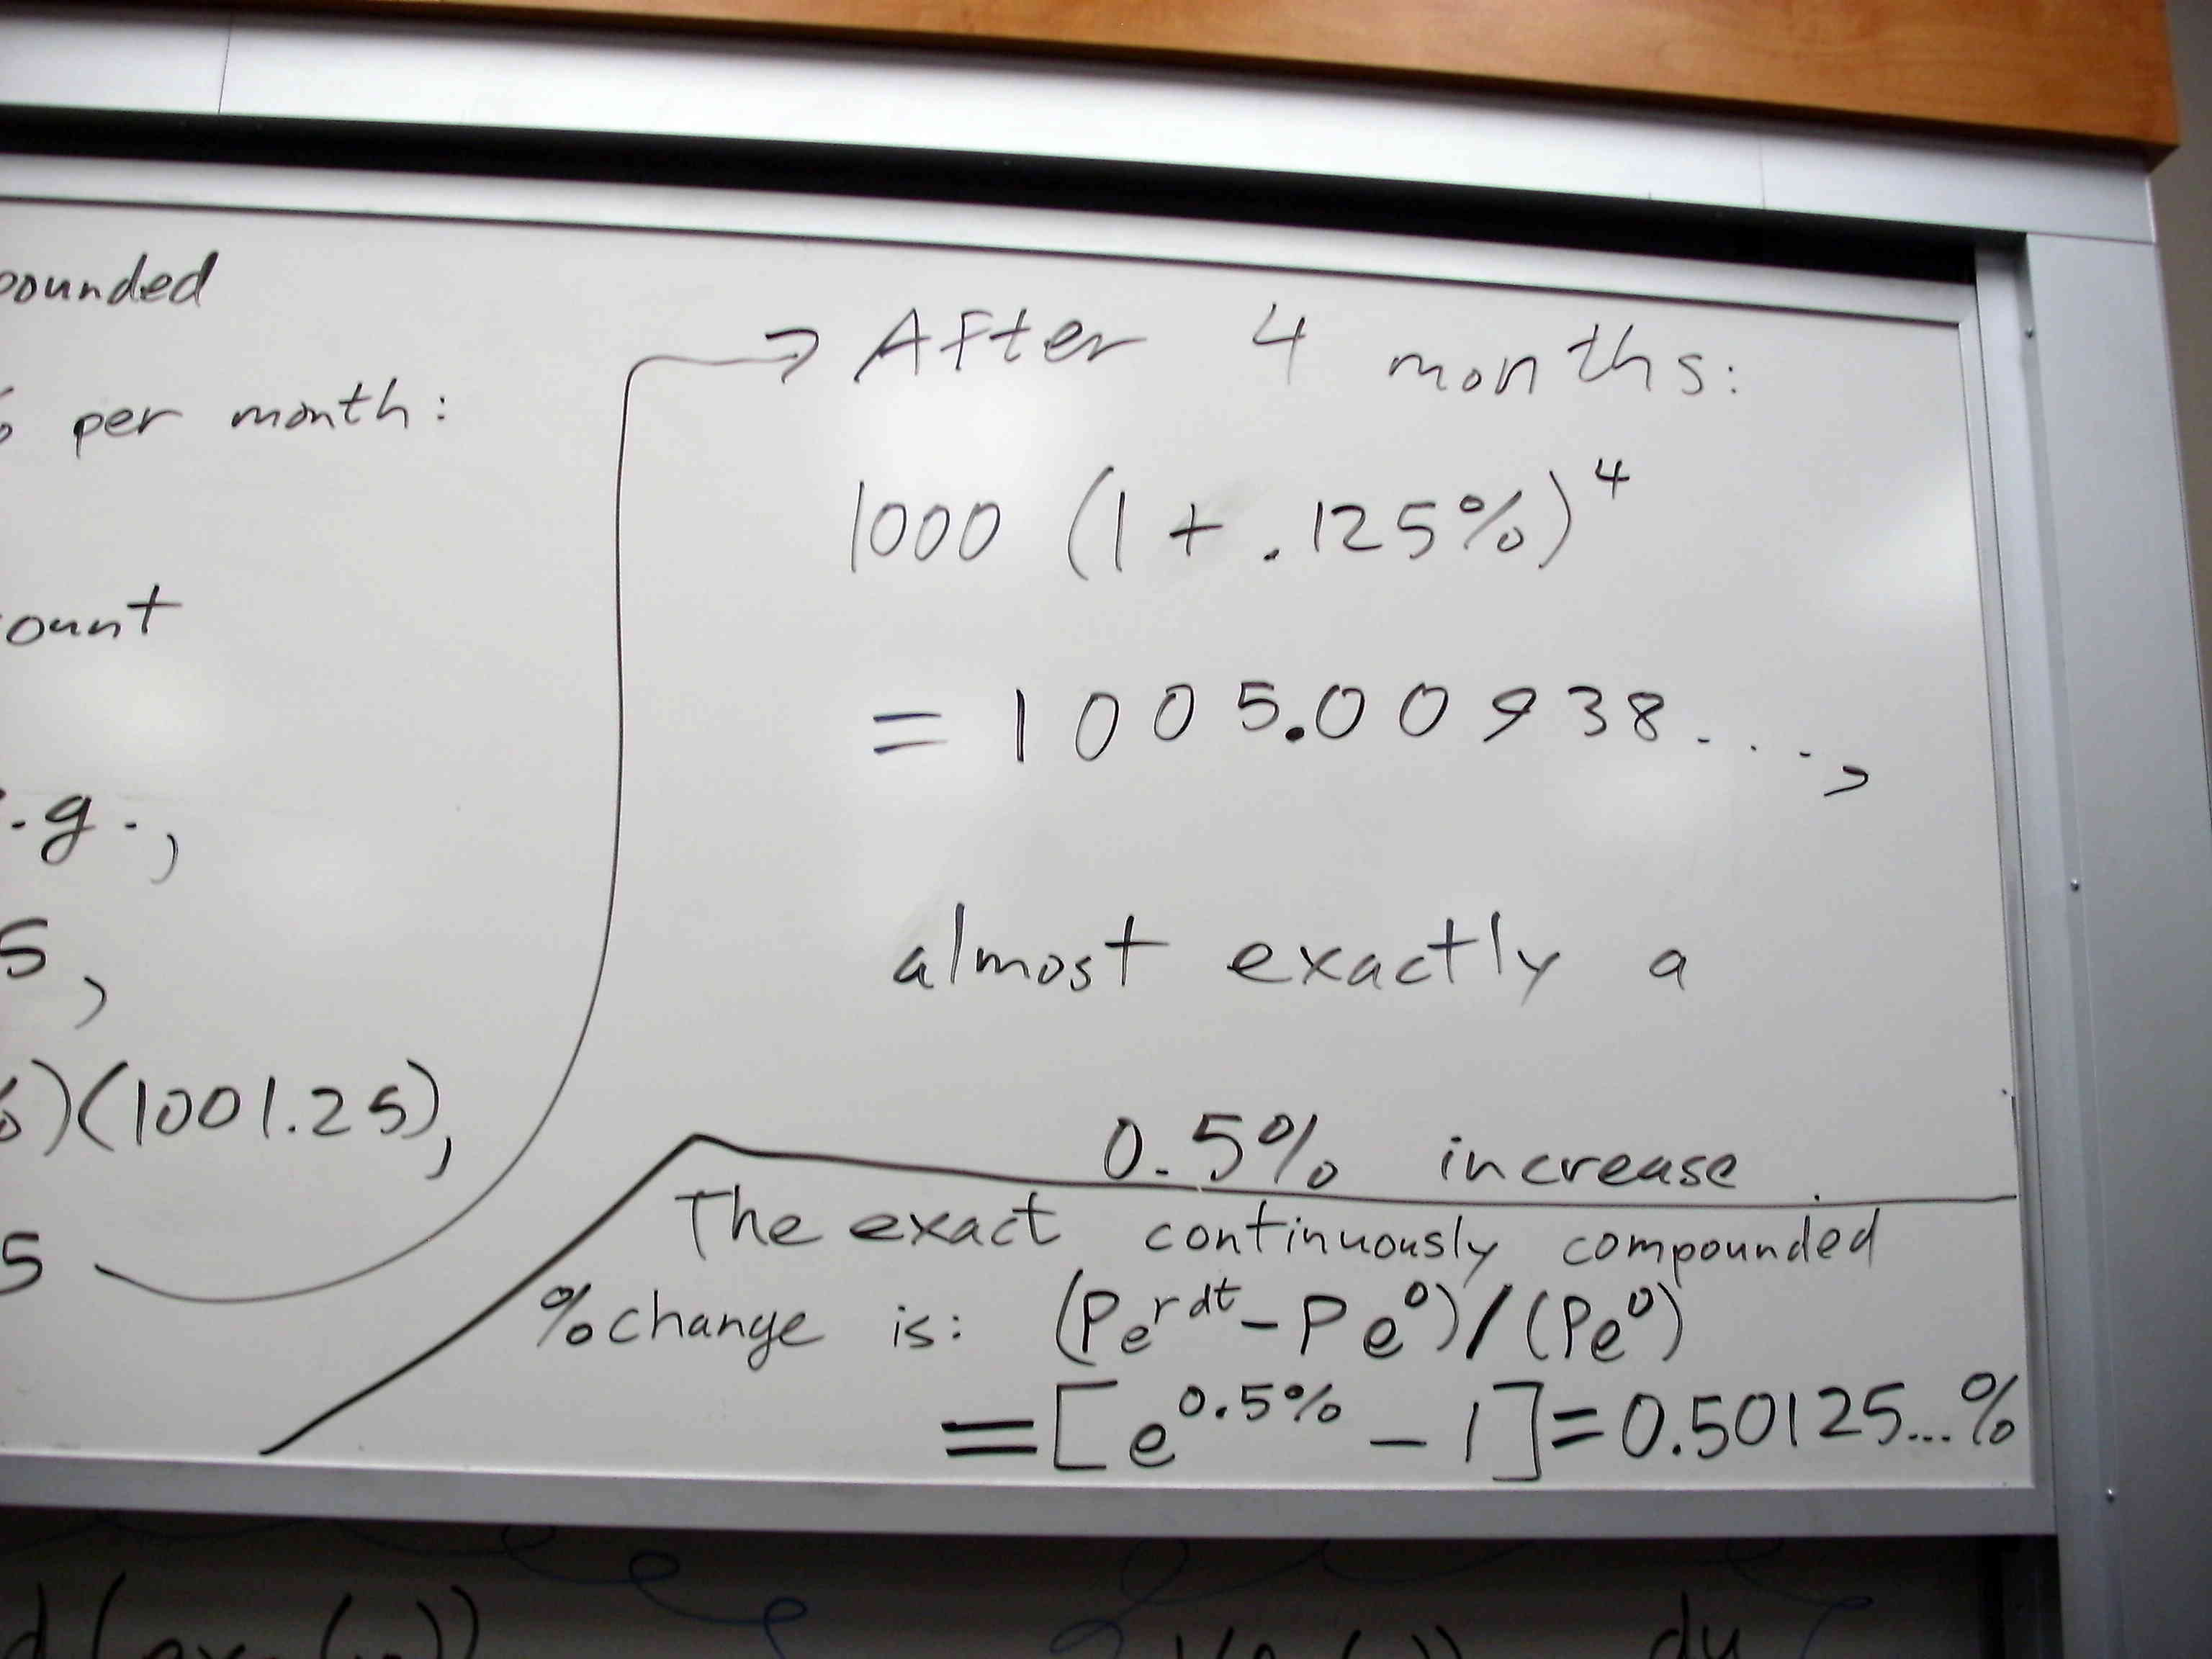 pounded
% per month:
ount
.g.,
5,
%)(1001.25),
5
→ After 4 months:
1000 (1 + .125%)^4
= 1005.00938...,
almost exactly a
0.5% increase.
The exact continuously compounded
% change is: (Pe^rdt - Pe^0)/(Pe^0)
= [e^0.5% - 1] = 0.50125...%
du